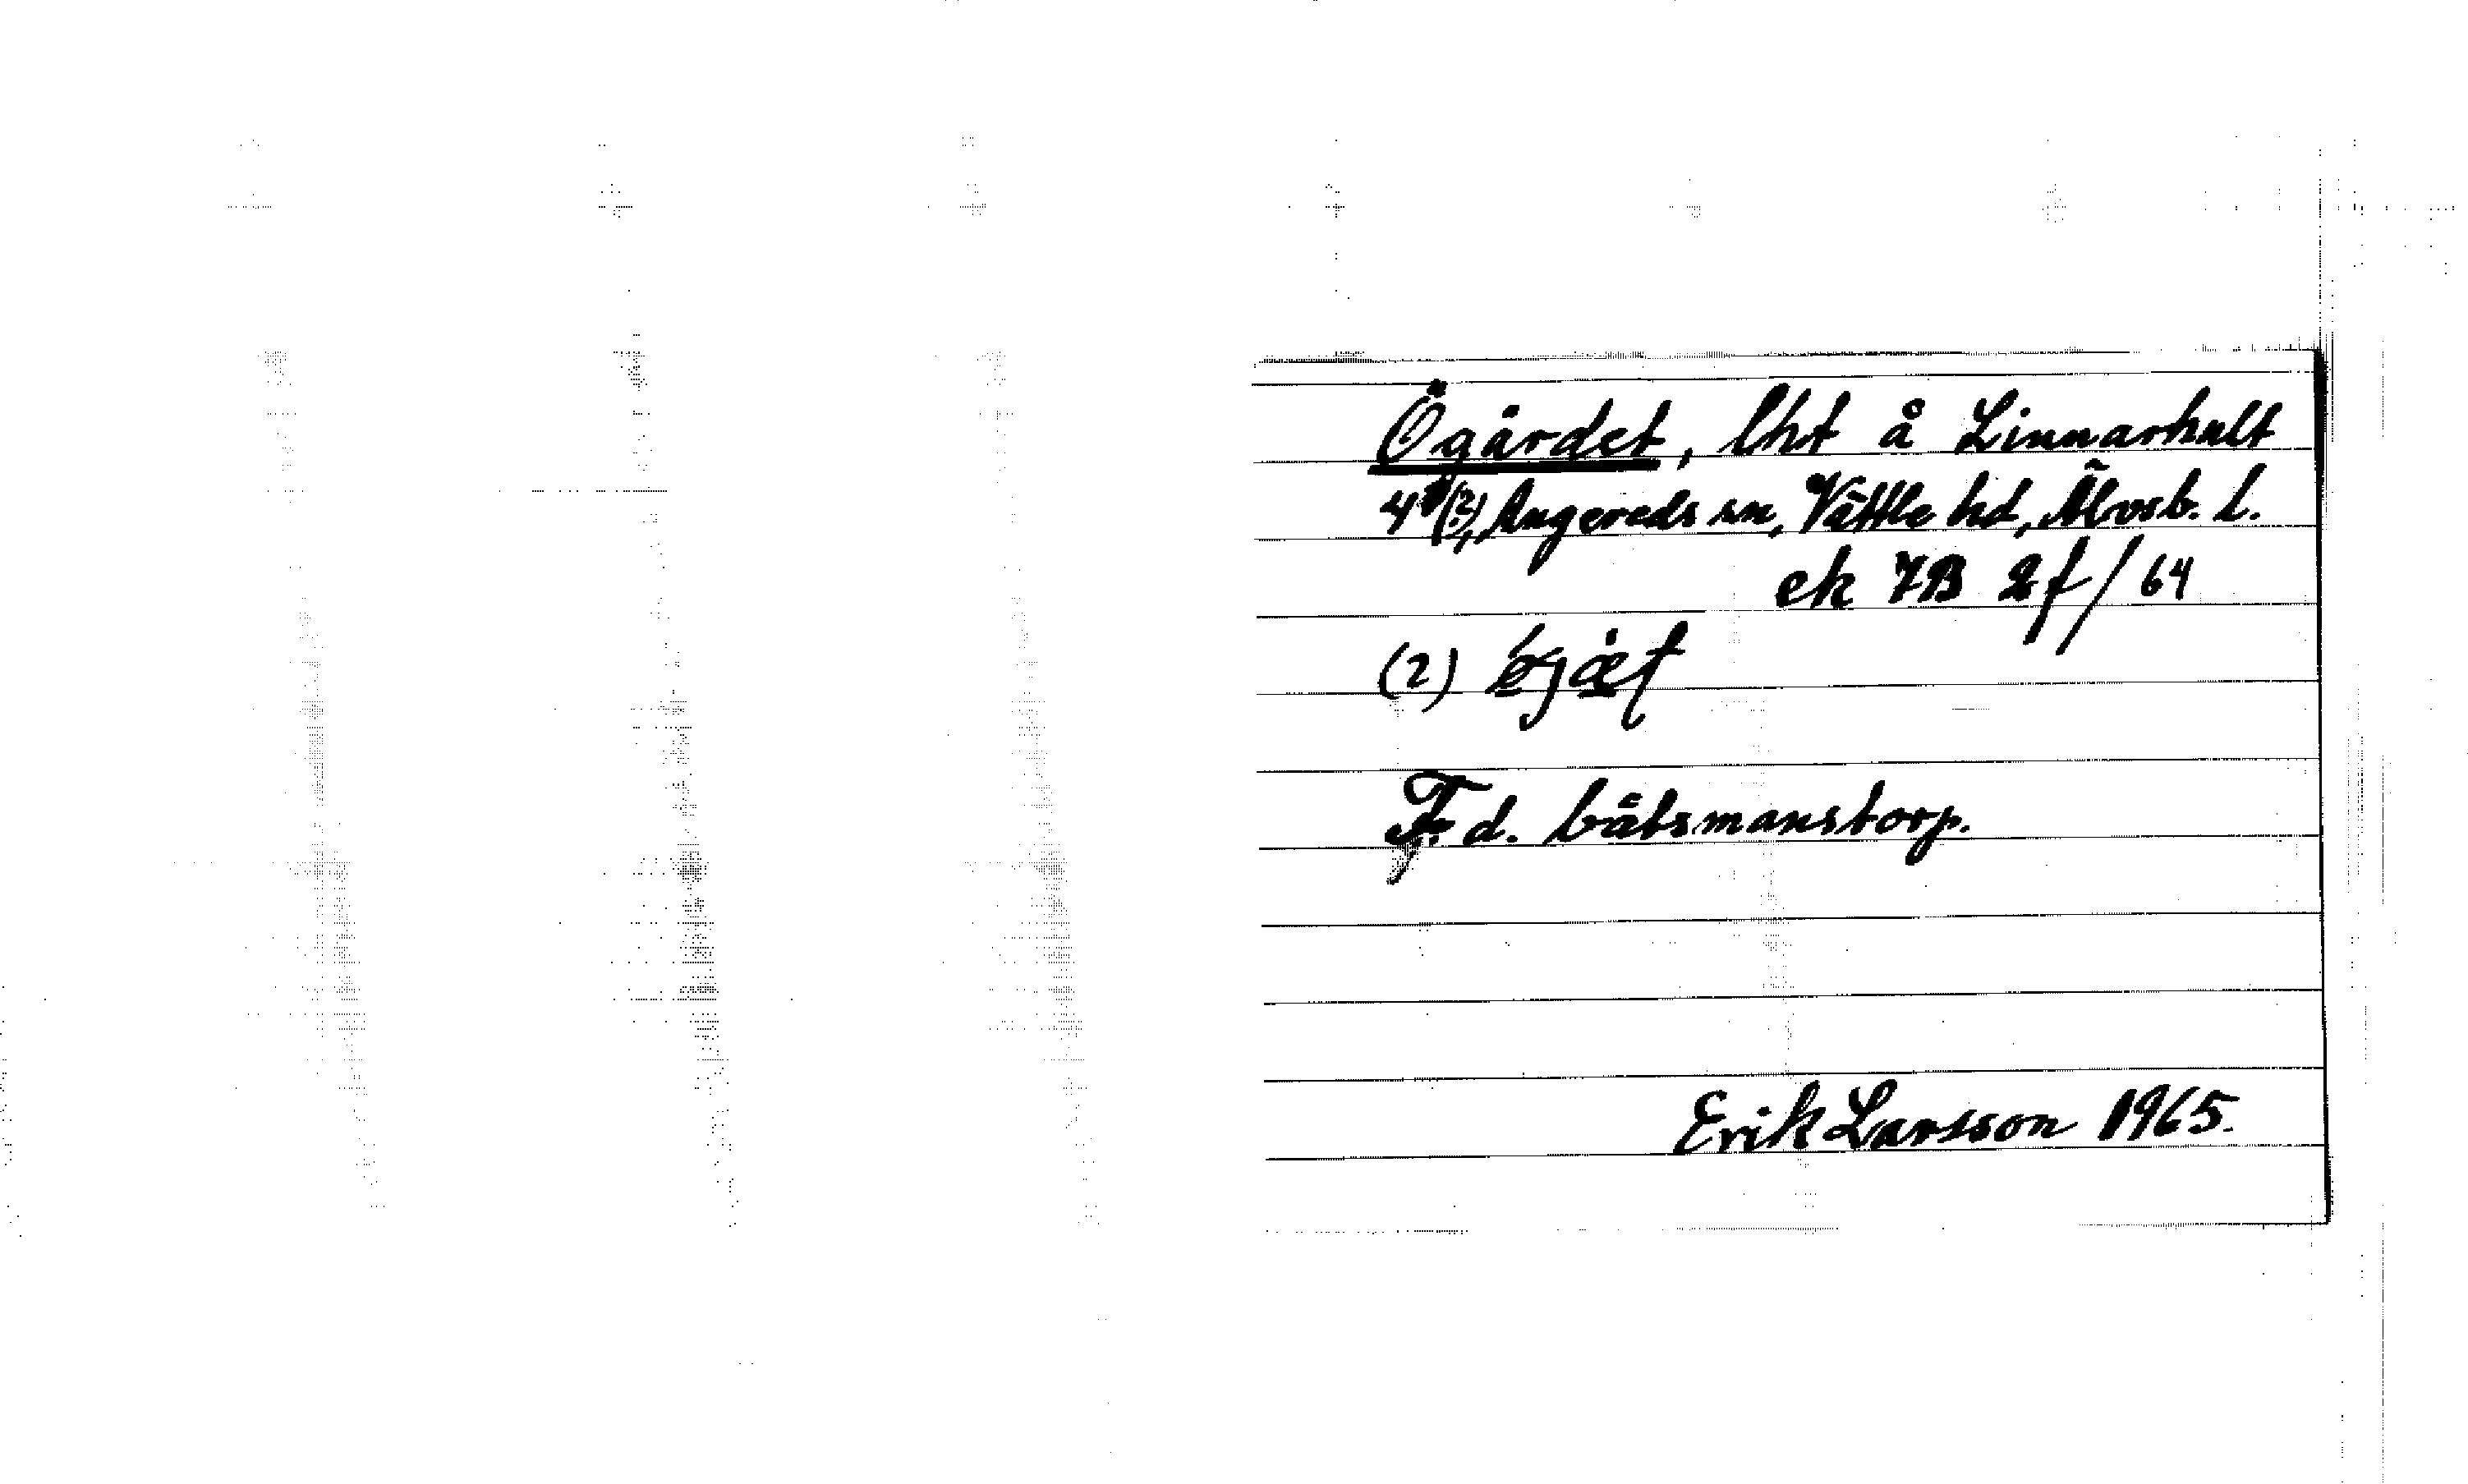 Ögärdet, lht å Linnarhult
4 (?), Angereds sn, Vättle hd, Älvsb. l.
ek 7B 2f/64
(2)
F. d. båtsmanstorp.
Erik Larsson 1965.